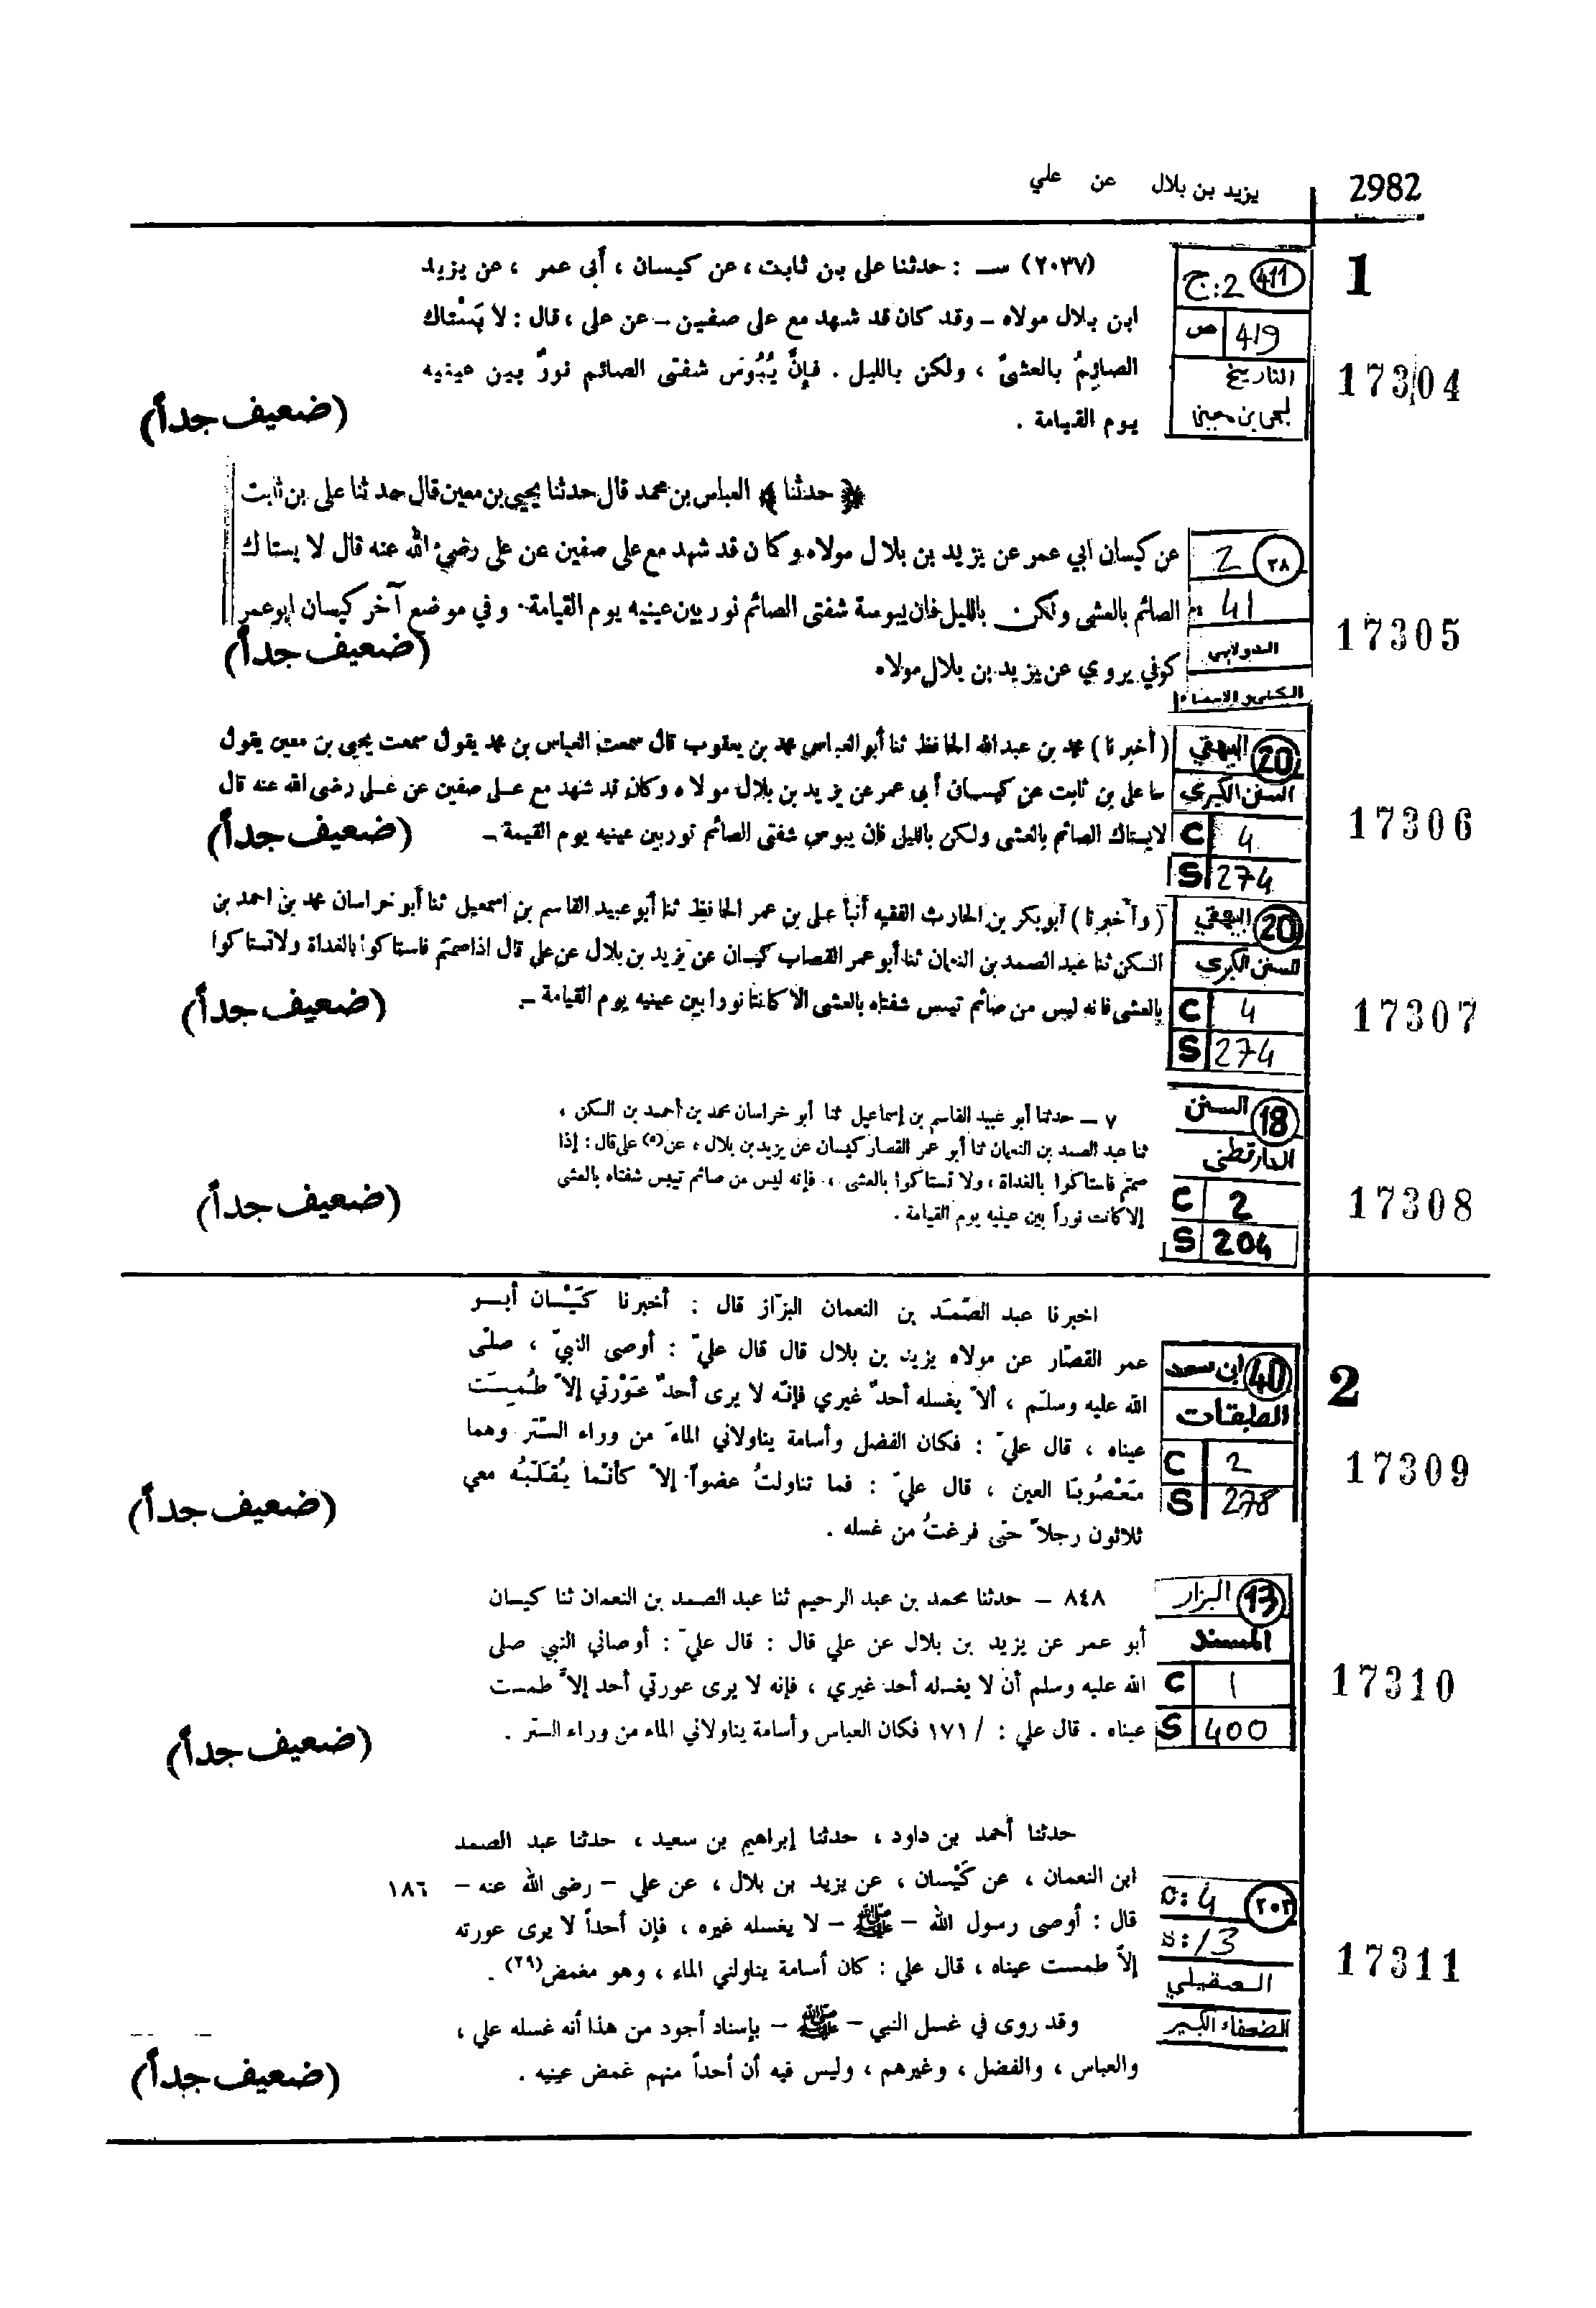 2982 يزيد بن بلال عن علي
1
411 ج:2
ص 419
التاريخ
ليحيى بن معين
17304
(٢٠٣٧) ســ : حدثنا على بن ثابت ، عن كيسان ، أبى عمر ، عن يزيد
ابن بلال مولاه ـ وقد كان قد شهد مع على صفين ـ عن على ، قال : لا يَسْتاك
الصائِمُ بالعشىّ ، ولكن بالليل . فإنَّ يُبُوسَ شفتى الصائم نورٌ بين عينيه
يوم القيامة .
(ضعيف جداً)
٢٨ 2
41
الدولابي
الكنى والاسماء
17305
﴿ حدثنا ﴾ العباس بن محمد قال حدثنا يحيى بن معين قال حد ثنا على بن ثابت
عن كيسان ابي عمر عن يزيد بن بلال مولاه وكان قد شهد مع على صفين عن على رضى الله عنه قال لا يستاك
الصائم بالعشى ولكن بالليل فان يبوسة شفتى الصائم نور بين عينيه يوم القيامة . وفي موضع آخر كيسان ابوعمر
كوفي يروي عن يزيد بن بلال مولاه
(ضعيف جداً)
20 البيهقي
السنن الكبرى
C 4
S 274
17306
( أخبرنا ) محمد بن عبد الله الحافظ ثنا أبو العباس محمد بن يعقوب قال سمعت العباس بن محمد يقول سمعت يحيى بن معين يقول
ثنا على بن ثابت عن كيسان أبى عمر عن يزيد بن بلال مولاه وكان قد شهد مع على صفين عن على رضى الله عنه قال
لا يستاك الصائم بالعشى ولكن بالليل فان يبوس شفتى الصائم نور بين عينيه يوم القيمة ـ
(ضعيف جداً)
20 البيهقي
السنن الكبرى
C 4
S 274
17307
( وأخبرنا ) أبو بكر بن الحارث الفقيه أنبأ على بن عمر الحافظ ثنا أبو عبيد القاسم بن اسمعيل ثنا أبو خراسان محمد بن احمد بن
السكن ثنا عبد الصمد بن النعمان ثنا أبو عمر القصاب كيسان عن يزيد بن بلال عن على قال اذا صمتم فاستاكوا بالغداة ولا تستاكوا
بالعشى فانه ليس من صائم تيبس شفتاه بالعشى الا كانتا نورا بين عينيه يوم القيامة ـ
(ضعيف جداً)
18 السنن
الدارقطنى
C 2
S 204
17308
٧ ـ حدثنا أبو عبيد القاسم بن إسماعيل ثنا أبو خراسان محمد بن أحمد بن السكن ،
ثنا عبد الصمد بن النعمان ثنا أبو عمر القصار كيسان عن يزيد بن بلال ، عن(٥) على قال : إذا
صمتم فاستاكوا بالغداة ، ولا تستاكوا بالعشى ، فإنه ليس من صائم تيبس شفتاه بالعشى
إلا كانت نوراً بين عينيه يوم القيامة .
(ضعيف جداً)
2
40 ابن سعد
الطبقات
C 2
S 278
17309
اخبرنا عبد الصّمَد بن النعمان البزّاز قال : أخبرنا كَيْسان أبـو
عمر القصّار عن مولاه يزيد بن بلال قال قال عليّ : أوصى النبيّ ، صلّى
الله عليه وسلّم ، ألاّ يغسله أحدٌ غيري فإنّه لا يرى أحدٌ عَوْرتي إلاّ طُمِسَت
عيناه ، قال عليّ : فكان الفضل وأسامة يناولاني الماءَ من وراء السّتر وهما
مَعْصُوبَا العين ، قال عليّ : فما تناولتُ عضواً إلاّ كأنّما يُقَلّبُه معي
ثلاثون رجلاً حتى فرغتُ من غسله .
(ضعيف جداً)
13 البزار
المسند
C 1
S 400
17310
٨٤٨ ـ حدثنا محمد بن عبد الرحيم ثنا عبد الصمد بن النعمان ثنا كيسان
أبو عمر عن يزيد بن بلال عن علي قال : قال عليّ : أوصاني النبي صلى
الله عليه وسلم أن لا يغسله أحد غيري ، فإنه لا يرى عورتي أحد إلاّ طمست
عيناه . قال علي : / ١٧١ فكان العباس وأسامة يناولاني الماء من وراء الستر .
(ضعيف جداً)
٢٠٣ C:4
S:13
العقيلي
الضعفاء الكبير
17311
حدثنا أحمد بن داود ، حدثنا إبراهيم بن سعيد ، حدثنا عبد الصمد
ابن النعمان ، عن كَيْسان ، عن يزيد بن بلال ، عن علي – رضى الله عنه – ١٨٦
قال : أوصى رسول الله – ﷺ – لا يغسله غيره ، فإن أحداً لا يرى عورته
إلاّ طمست عيناه ، قال علي : كان أسامة يناولني الماء ، وهو مغمض(٢٩) .
وقد روى في غسل النبي – ﷺ – بإسناد أجود من هذا أنه غسله علي ،
والعباس ، والفضل ، وغيرهم ، وليس فيه أن أحداً منهم غمض عينيه .
(ضعيف جداً)